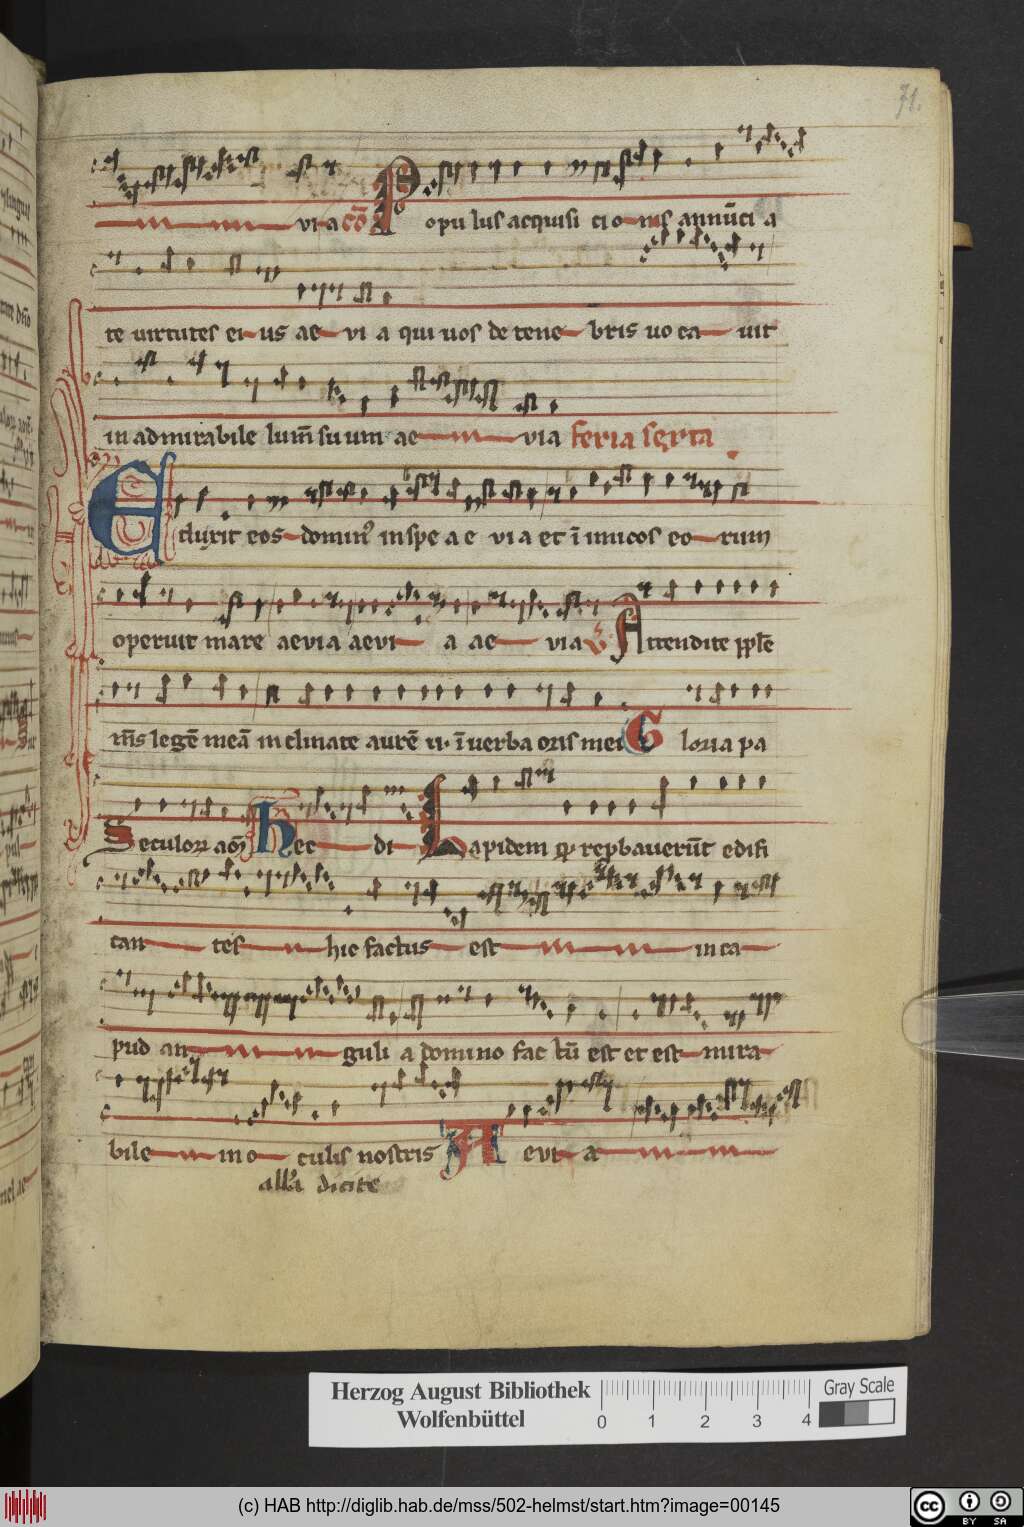 71.
via cō Populus acquisicionis annūcia
te uirtutes eius aevia qui uos de tenebris uocauit
in admirabile lum̄ suum aevia feria sexta
Eduxit eos domin⁹ in spe aevia et īimicos eorum
operuit mare aevia aevia aevia Attendite pp̄le
m̄s legē meā inclinate aurē ū. ī uerba oris mei Gloria pa
Seculorꝝ am̄ Hec di Lapidem qͥ reꝓbauerūt edifi
cantes hic factus est in ca
pud anguli a domino factū est et est mira
bile in oculis nostris Aevia
all'a dicite
Herzog August Bibliothek
Wolfenbüttel
0 1 2 3 4
Gray Scale
(c) HAB http://diglib.hab.de/mss/502-helmst/start.htm?image=00145
cc BY SA